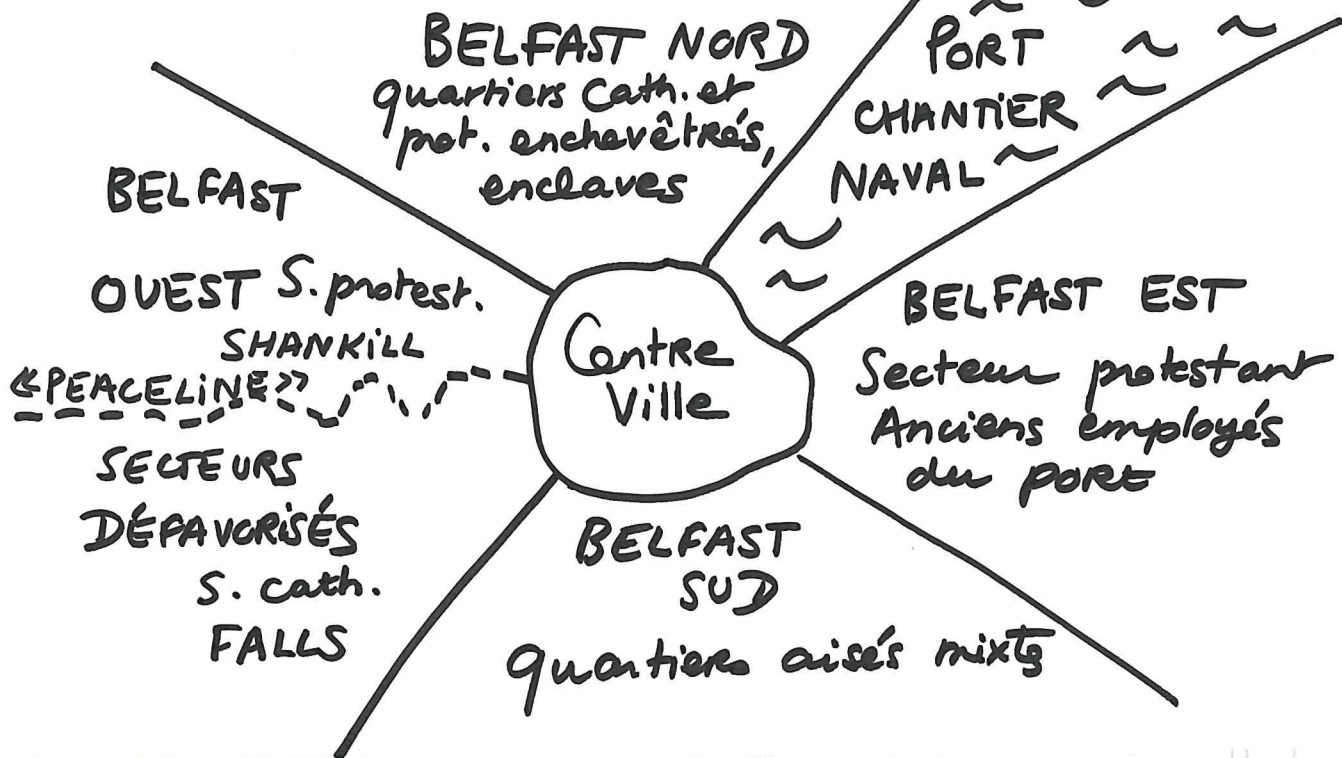 BELFAST NORD
quartiers Cath. et
prot. enchevêtrés,
enclaves
PORT
CHANTIER
NAVAL
BELFAST
OUEST S. protest.
SHANKILL
«PEACELINE»
SECTEURS
DÉFAVORISÉS
S. cath.
FALLS
Centre
Ville
BELFAST EST
Secteur protestant
Anciens employés
du PORT
BELFAST
SUD
quartiers aisés mixts